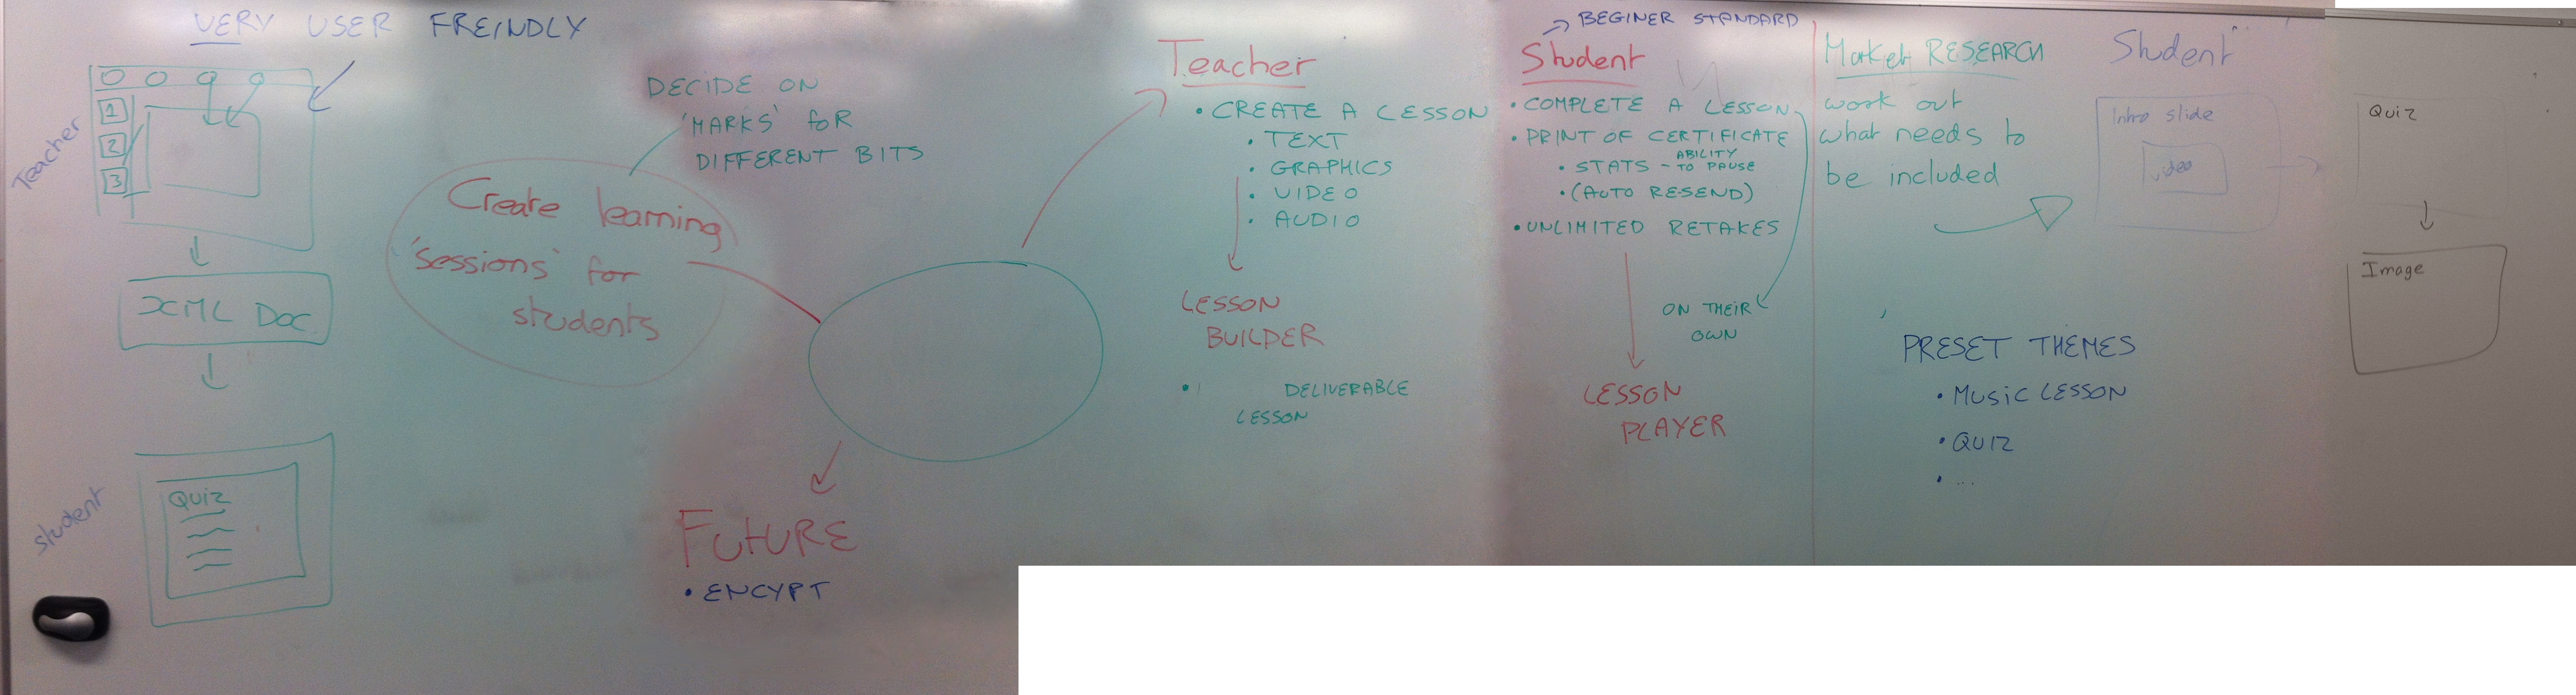 VERY USER FREINDLY
Teacher
1
2
3
XML DOC
student
Quiz
Create learning
'sessions' for
students
DECIDE ON
'MARKS' FOR
DIFFERENT BITS
FUTURE
• ENCYPT
Teacher
• CREATE A LESSON
• TEXT
• GRAPHICS
• VIDEO
• AUDIO
LESSON
BUILDER
• DELIVERABLE
LESSON
→ BEGINER STANDARD
Student
• COMPLETE A LESSON
• PRINT OF CERTIFICATE
• STATS - ABILITY
TO PAUSE
• (AUTO RESEND)
• UNLIMITED RETAKES
ON THEIR
OWN
LESSON
PLAYER
Market RESEARCH
work out
what needs to
be included
PRESET THEMES
• MUSIC LESSON
• QUIZ
• ...
Student
Intro slide
Video
Quiz
Image